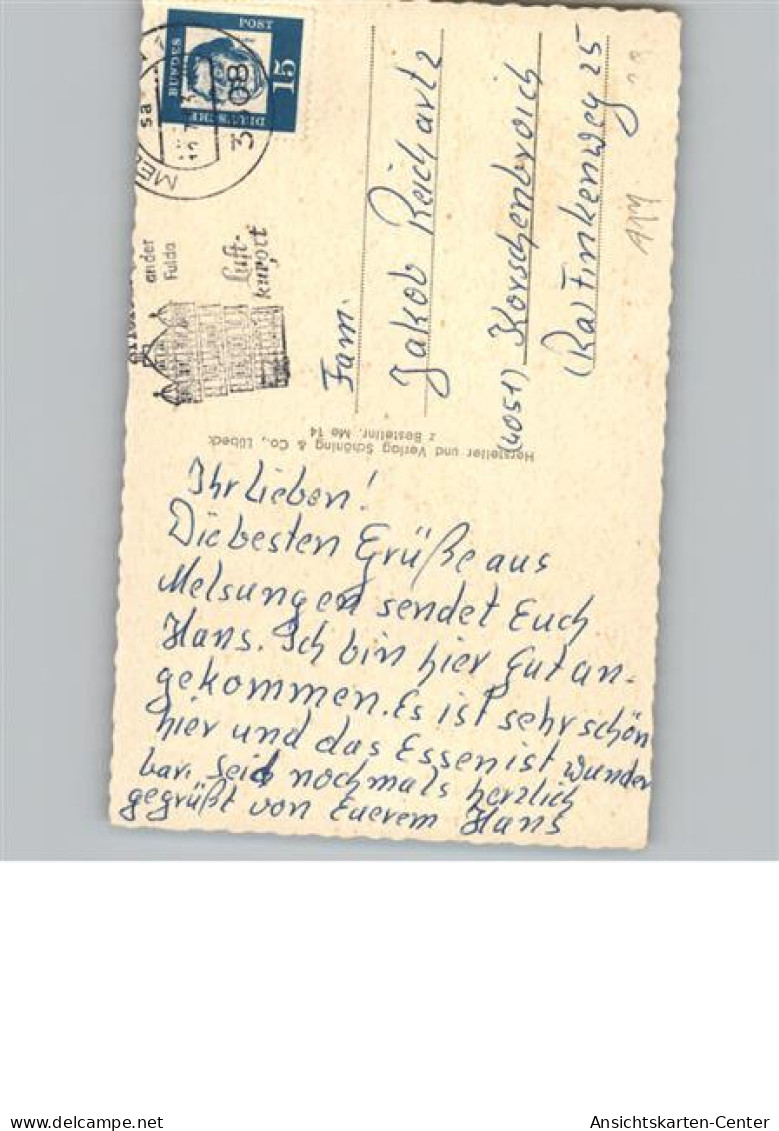 POST
15
BUNDES
DEUTSCHE
3508
an der
Fulda
Luft-
kurort
Fam.
Jakob Reichartz
(4051) Korschenbroich
Hersteller und Verlag Schöning & Co., Lübeck
z Bestellnr. Me 14
Ihr Lieben!
Die besten Grüße aus
Melsungen sendet Euch
Hans. Ich bin hier gut an-
gekommen. Es ist sehr schön
hier und das Essen ist wunder
bar. Seid nochmals herzlich
gegrüßt von Euerem Hans
delcampe.net
Ansichtskarten-Center